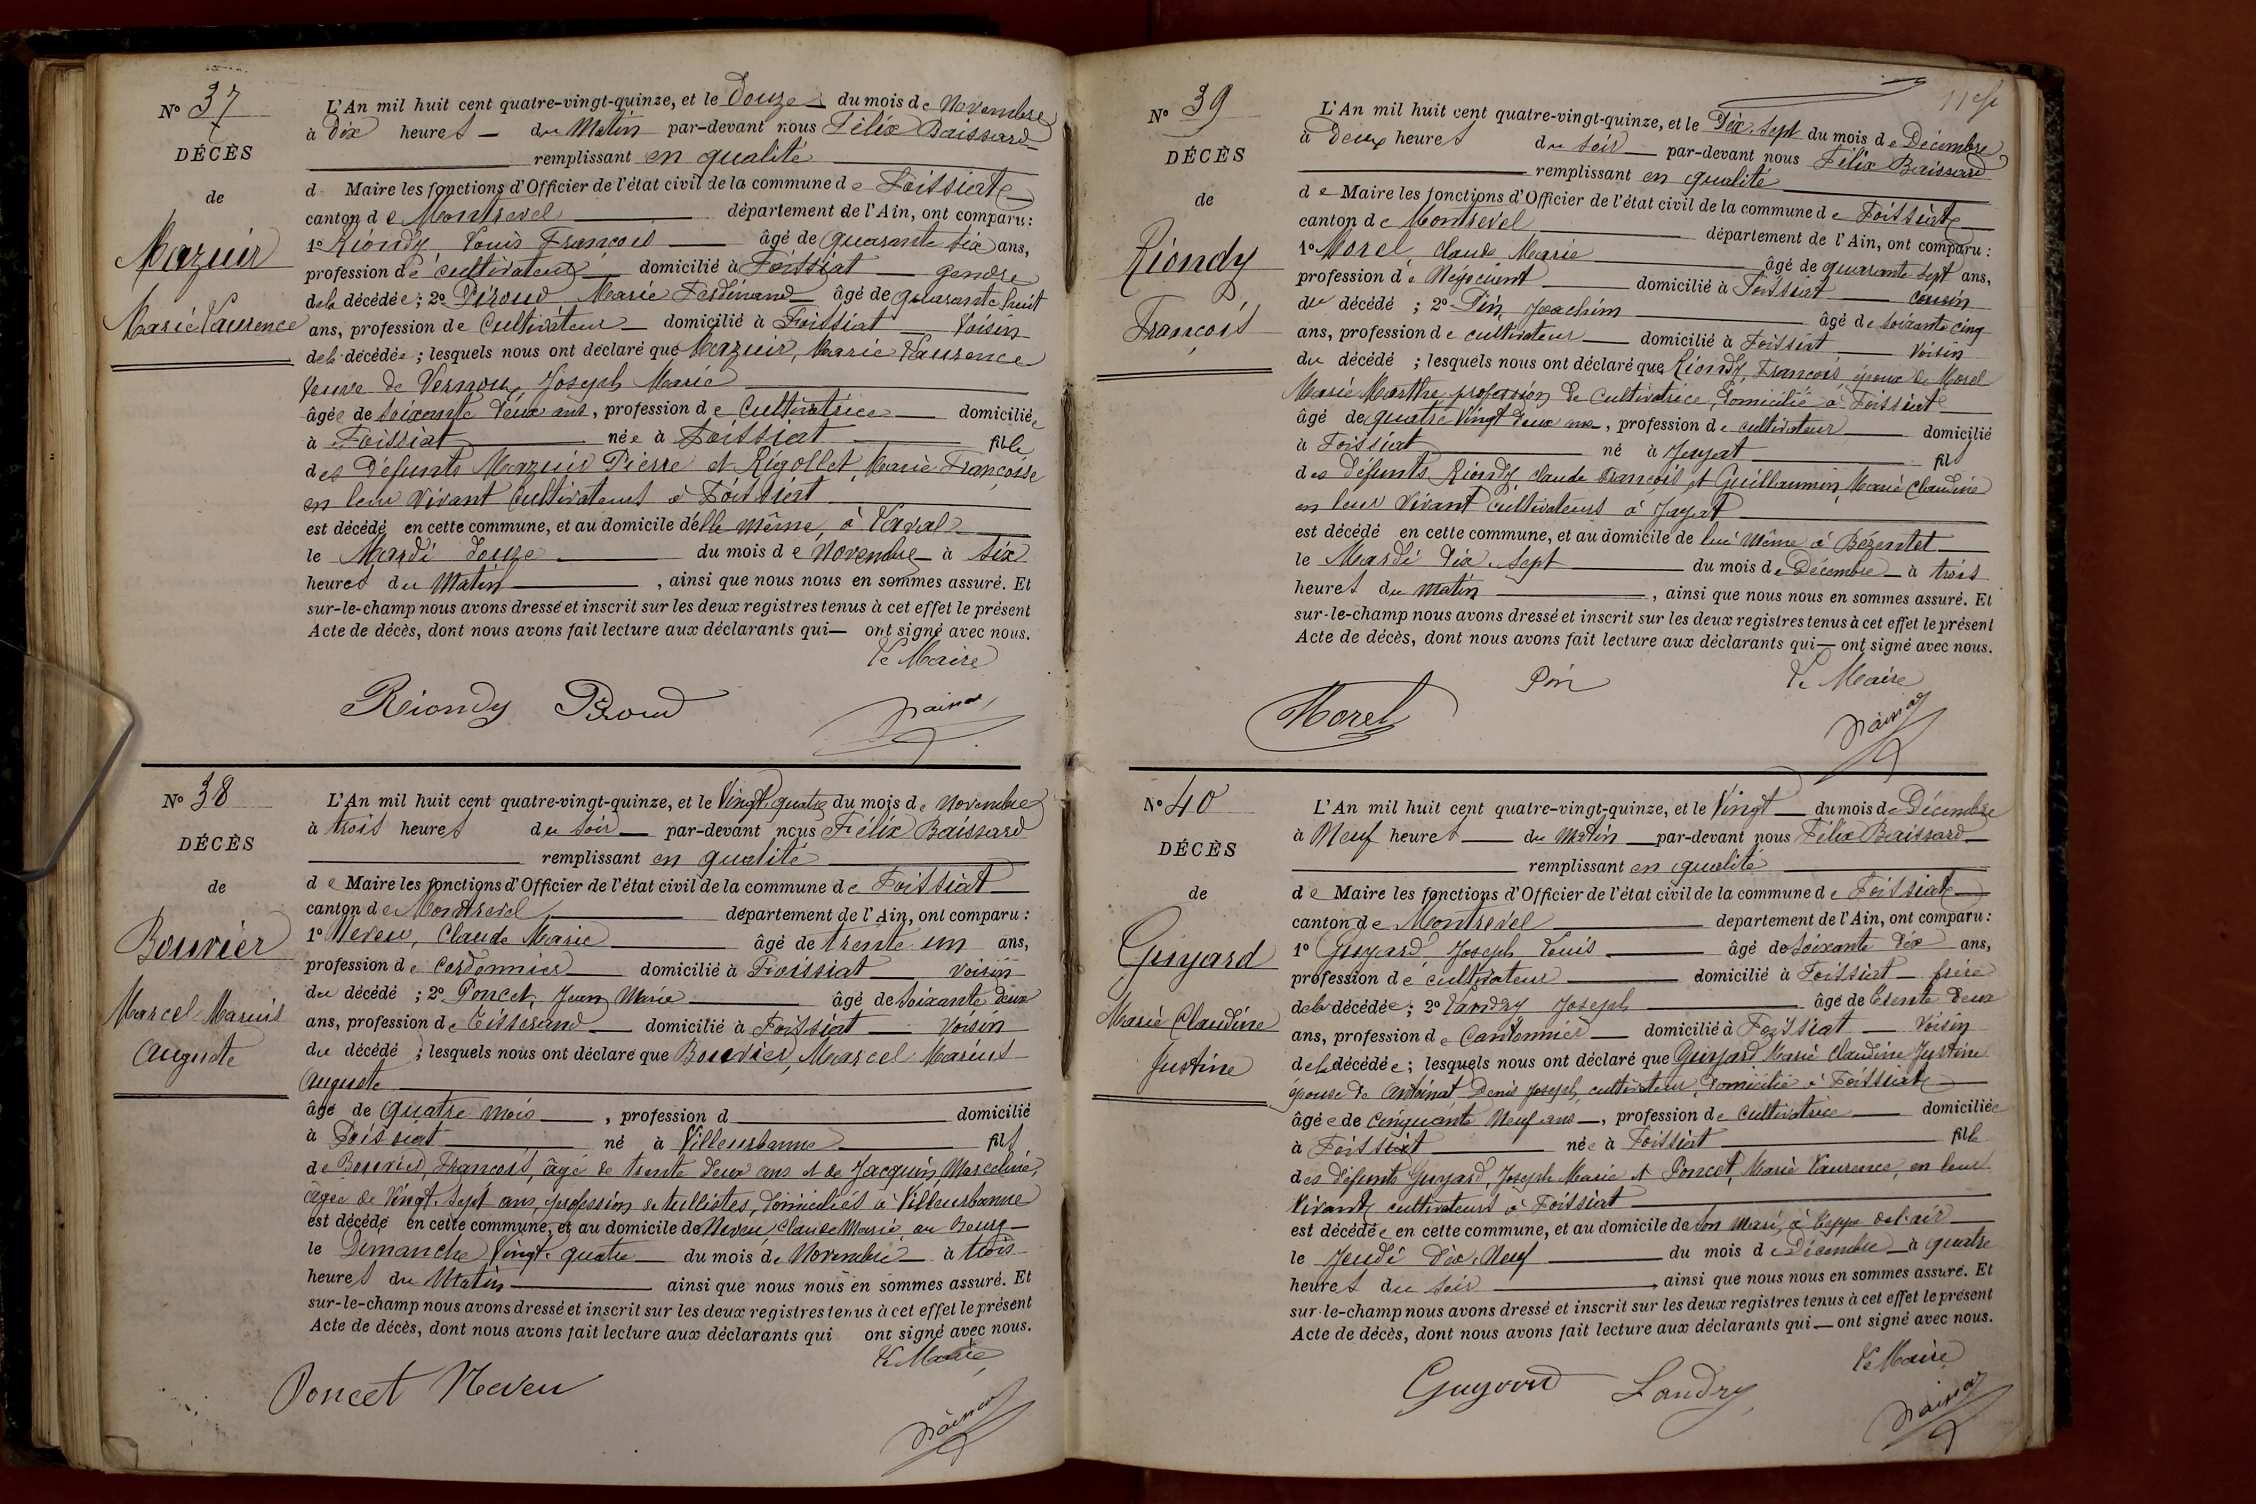 N° 37
DÉCÈS
de
Mazuir
Marie Laurence
L'An mil huit cent quatre-vingt-quinze, et le Douze du mois de Novembre
à Dix heures du Matin par-devant nous Félix Baissard
remplissant en qualité
d Maire les fonctions d'Officier de l'état civil de la commune de Foissiat
canton de Montrevel département de l'Ain, ont comparu :
1° Riondy Louis François âgé de quarante six ans,
profession de cultivateur domicilié à Foissiat gendre
de la décédée ; 2° Piroud Marie Ferdinand âgé de quarante huit
ans, profession de Cultivateur domicilié à Foissiat Voisin
de la décédée ; lesquels nous ont déclaré que Mazuir, Marie Laurence
Veuve de Vernoux Joseph Marie
âgée de soixante deux ans, profession de Cultivatrice domiciliée
à Foissiat née à Foissiat fille
des défunts Mazuir Pierre et Rigollet Marie Françoise
en leur vivant Cultivateurs à Foissiat
est décédé en cette commune, et au domicile d'elle même, à Laval
le Mardi douze du mois de Novembre à six
heures du Matin, ainsi que nous nous en sommes assuré. Et
sur-le-champ nous avons dressé et inscrit sur les deux registres tenus à cet effet le présent
Acte de décès, dont nous avons fait lecture aux déclarants qui — ont signé avec nous.
Le Maire
Riondy Piroud
N° 38
DÉCÈS
de
Bouvier
Marcel Marius
Auguste
L'An mil huit cent quatre-vingt-quinze, et le Vingt quatre du mois de Novembre
à trois heures du soir par-devant nous Félix Baissard
remplissant en qualité
de Maire les fonctions d'Officier de l'état civil de la commune de Foissiat
canton de Montrevel département de l'Ain, ont comparu :
1° Neveu, Claude Marie âgé de trente un ans,
profession de Cordonnier domicilié à Foissiat voisin
du décédé ; 2° Poncet, Jean Marie âgé de soixante deux
ans, profession de Tisserand domicilié à Foissiat Voisin
du décédé ; lesquels nous ont déclaré que Bouvier, Marcel Marius
Auguste
âgé de quatre mois, profession d domicilié
à Foissiat né à Villeurbanne fils
de Bouvier, François, âgé de trente deux ans et de Jacquin, Marceline,
âgée de Vingt-Sept ans, profession de tullistes, domiciliés à Villeurbanne
est décédé en cette commune, et au domicile de Neveu Claude Marie, au Bourg
le Dimanche Vingt quatre du mois de Novembre à trois
heures du Matin ainsi que nous nous en sommes assuré. Et
sur-le-champ nous avons dressé et inscrit sur les deux registres tenus à cet effet le présent
Acte de décès, dont nous avons fait lecture aux déclarants qui ont signé avec nous.
Le Maire
Poncet Neveu
N° 39
DÉCÈS
de
Riondy
François
L'An mil huit cent quatre-vingt-quinze, et le Dix-sept du mois de Décembre
à Deux heures du soir par-devant nous Félix Baissard
remplissant en qualité
de Maire les fonctions d'Officier de l'état civil de la commune de Foissiat
canton de Montrevel département de l'Ain, ont comparu :
1° Morel, Claude Marie âgé de quarante sept ans,
profession de Négociant domicilié à Foissiat cousin
du décédé ; 2° Pin, Joachim âgé de soixante cinq
ans, profession de cultivateur domicilié à Foissiat Voisin
du décédé ; lesquels nous ont déclaré que Riondy, François, époux de Morel
Marie Marthe profession de Cultivatrice, domicilié à Foissiat
âgé de quatre Vingt deux ans, profession de cultivateur domicilié
à Foissiat né à Jayat fils
des défunts Riondy, Claude François, et Guillaumin, Marie Claudine
en leur vivant cultivateurs à Jayat
est décédé en cette commune, et au domicile de lui même à Bézentet
le Mardi Dix-Sept du mois de Décembre à trois
heures du Matin, ainsi que nous nous en sommes assuré. Et
sur-le-champ nous avons dressé et inscrit sur les deux registres tenus à cet effet le présent
Acte de décès, dont nous avons fait lecture aux déclarants qui — ont signé avec nous.
Le Maire
Morel Pin
N° 40
DÉCÈS
de
Guyard
Marie Claudine
Justine
L'An mil huit cent quatre-vingt-quinze, et le Vingt du mois de Décembre
à Neuf heures du Matin par-devant nous Félix Baissard
remplissant en qualité
de Maire les fonctions d'Officier de l'état civil de la commune de Foissiat
canton de Montrevel département de l'Ain, ont comparu :
1° Guyard Joseph Louis âgé de soixante dix ans,
profession de cultivateur domicilié à Foissiat frère
de la décédée ; 2° Landry Joseph âgé de trente deux
ans, profession de Cantonnier domicilié à Foissiat Voisin
de la décédée ; lesquels nous ont déclaré que Guyard Marie Claudine Justine
épouse de Antoinat Denis Joseph, cultivateur, domicilié à Foissiat
âgée de cinquante Neuf ans, profession de cultivatrice domiciliée
à Foissiat née à Foissiat fille
des défunts Guyard, Joseph Marie et Poncet, Marie Laurence, en leur
vivant cultivateurs à Foissiat
est décédée en cette commune, et au domicile de son Mari, à Teppe
le Jeudi Dix-Neuf du mois de Décembre à quatre
heures du soir, ainsi que nous nous en sommes assuré. Et
sur-le-champ nous avons dressé et inscrit sur les deux registres tenus à cet effet le présent
Acte de décès, dont nous avons fait lecture aux déclarants qui — ont signé avec nous.
Le Maire
Guyard Landry